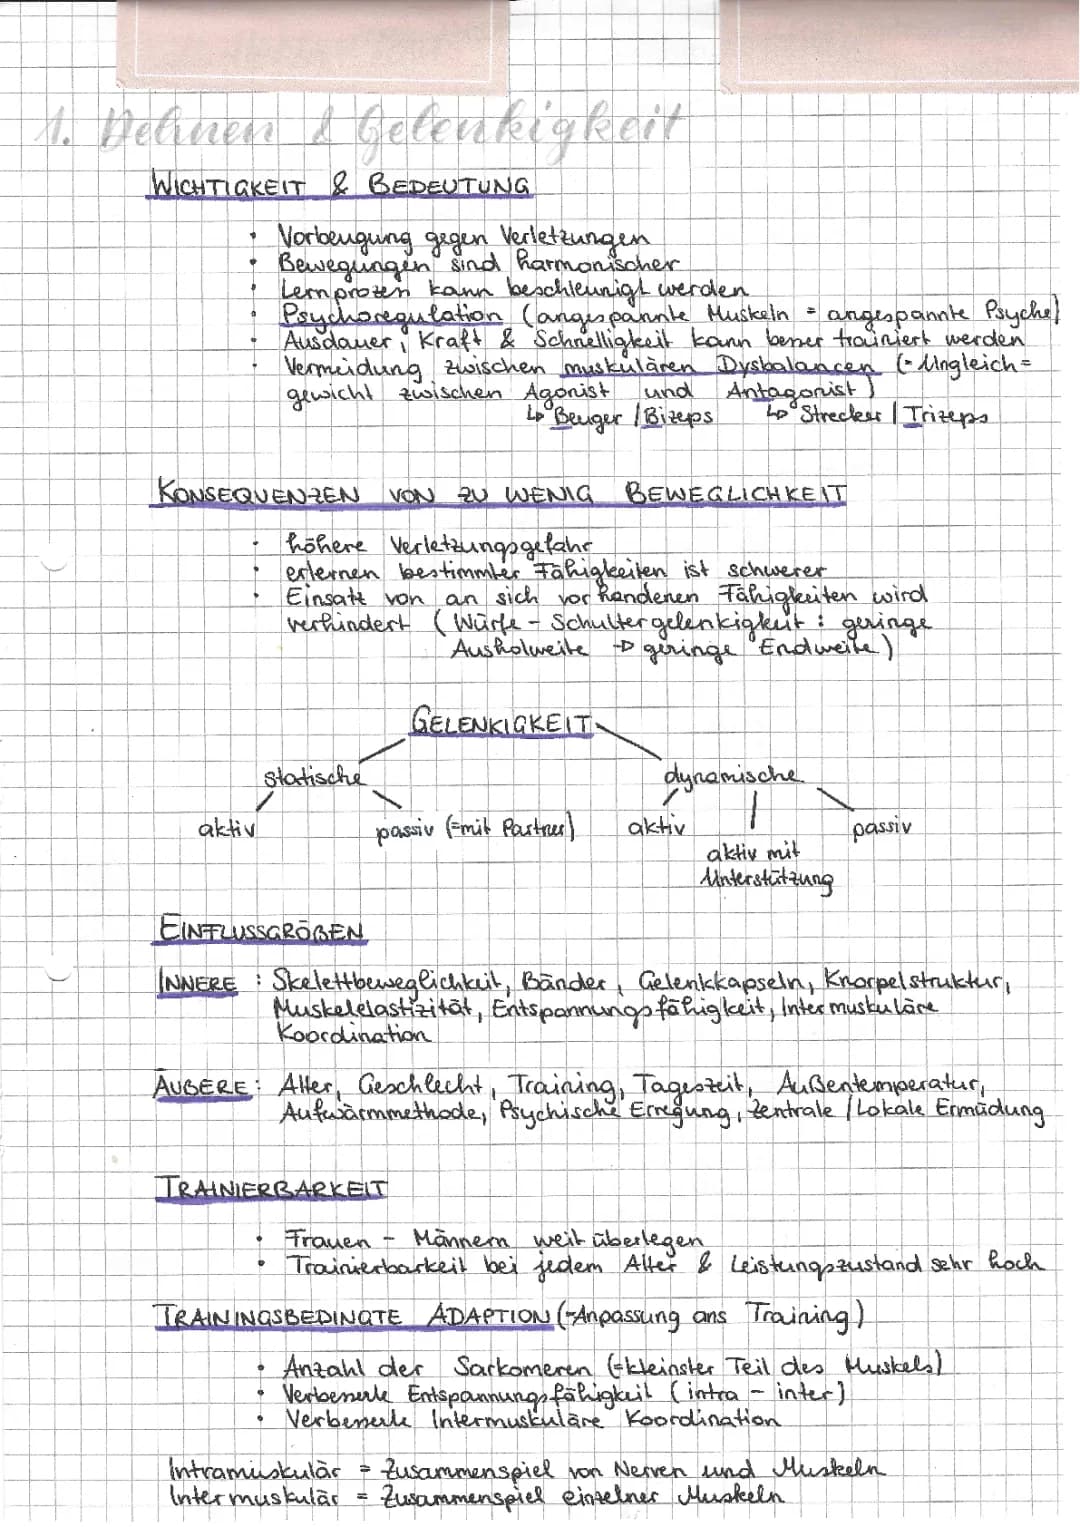 1. Dehnen & Gelenkigkeit
WICHTIGKEIT & BEDEUTUNG
• Vorbeugung gegen Verletzungen
• Bewegungen sind harmonischer
• Lernprozess kann beschleunigt werden
• Psychoregulation (angespannte Muskeln = angespannte Psyche)
• Ausdauer, Kraft & Schnelligkeit kann besser trainiert werden
• Vermeidung zwischen muskulären Dysbalancen (= Ungleich=
gewicht zwischen Agonist und Antagonist)
↳ Beuger / Bizeps ↳ Strecker / Trizeps
KONSEQUENZEN VON ZU WENIG BEWEGLICHKEIT
• höhere Verletzungsgefahr
• erlernen bestimmter Fähigkeiten ist schwerer
• Einsatz von an sich vorhandenen Fähigkeiten wird
verhindert (Würfe - Schultergelenkigkeit: geringe
Ausholweite → geringe Endweite)
GELENKIGKEIT
statische dynamische
aktiv passiv (=mit Partner) aktiv passiv
aktiv mit
Unterstützung
EINFLUSSGRÖßEN
INNERE: Skelettbeweglichkeit, Bänder, Gelenkkapseln, Knorpelstruktur,
Muskelelastizität, Entspannungsfähigkeit, Intermuskuläre
Koordination
ÄUßERE: Alter, Geschlecht, Training, Tageszeit, Außentemperatur,
Aufwärmmethode, Psychische Erregung, Zentrale / Lokale Ermüdung
TRAINIERBARKEIT
• Frauen - Männern weit überlegen
• Trainierbarkeit bei jedem Alter & Leistungszustand sehr hoch
TRAININGSBEDINGTE ADAPTION (=Anpassung ans Training)
• Anzahl der Sarkomeren (=kleinster Teil des Muskels)
• Verbesserte Entspannungsfähigkeit (intra - inter)
• Verbesserte Intermuskuläre Koordination
Intramuskulär = Zusammenspiel von Nerven und Muskeln
Intermuskulär = Zusammenspiel einzelner Muskeln